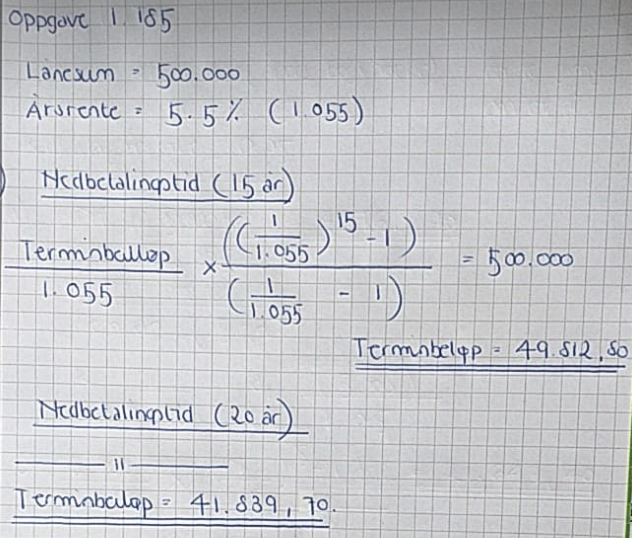 Oppgave 1.185
Lånesum = 500.000
Årsrente = 5.5% (1.055)
Nedbetalingstid (15 år)
Terminbeløp / 1.055 × ((1/1.055)^15 - 1) / (1/1.055 - 1) = 500.000
Terminbeløp = 49.812,80
Nedbetalingstid (20 år)
—— 11 ——
Terminbeløp = 41.839,70.